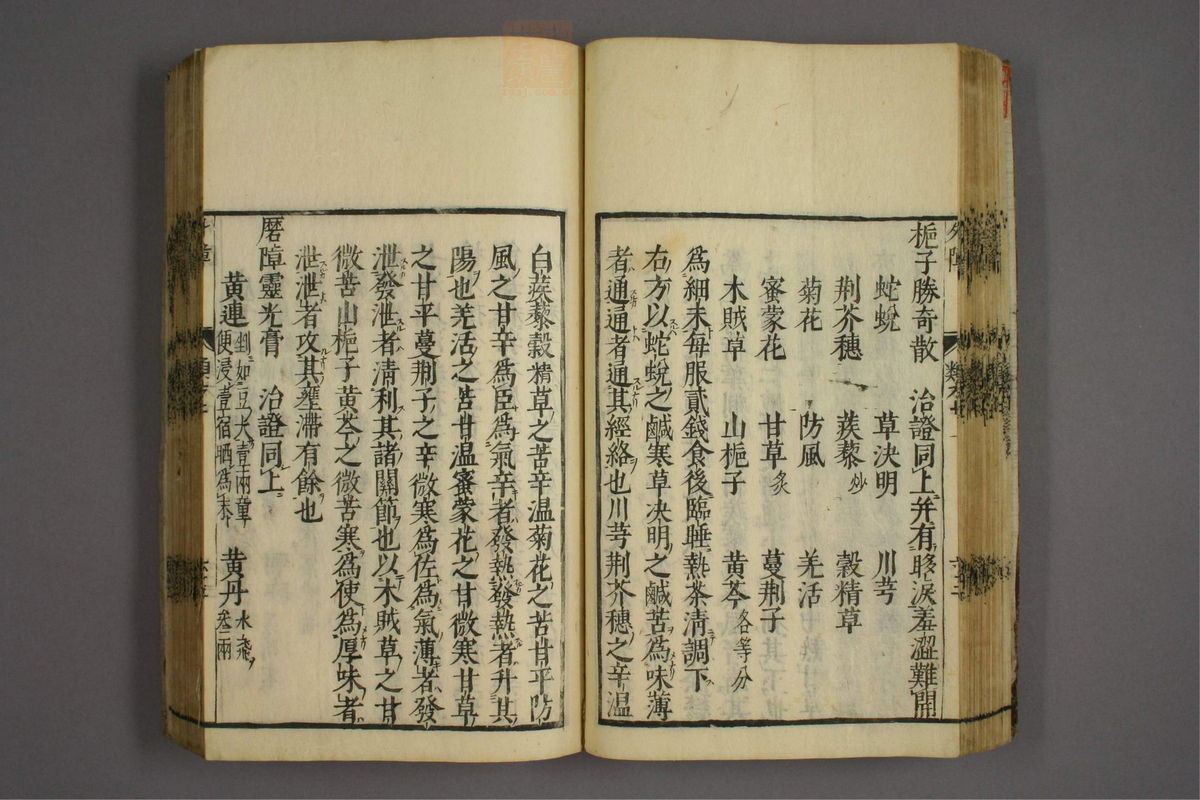 梔子勝奇散　治證同上幷有眵淚羞澀難開
蛇蛻　草決明　川芎
荆芥穗　蒺藜炒　穀精草
菊花　防風　羌活
蜜蒙花　甘草炙　蔓荆子
木賊草　山梔子　黃芩各等分
爲細末每服貳錢食後臨睡熱茶清調下
右方以蛇蛻之鹹寒草决明之鹹苦爲味薄
者通通者通其經絡也川芎荆芥穗之辛温
白蒺藜穀精草之苦辛温菊花之苦甘平防
風之甘辛爲臣爲氣辛者發熱發熱者升其
陽也羌活之苦甘温蜜蒙花之甘微寒甘草
之甘平蔓荆子之辛微寒爲佐爲氣薄者發
泄發泄者清利其諸關節也以木賊草之甘
微苦山梔子黃芩之微苦寒爲使爲厚味者
泄泄者攻其壅滯有餘也
磨障靈光膏　治證同上
黃連剉如豆大壹兩童便浸壹宿晒爲末　黃丹水飛叁兩